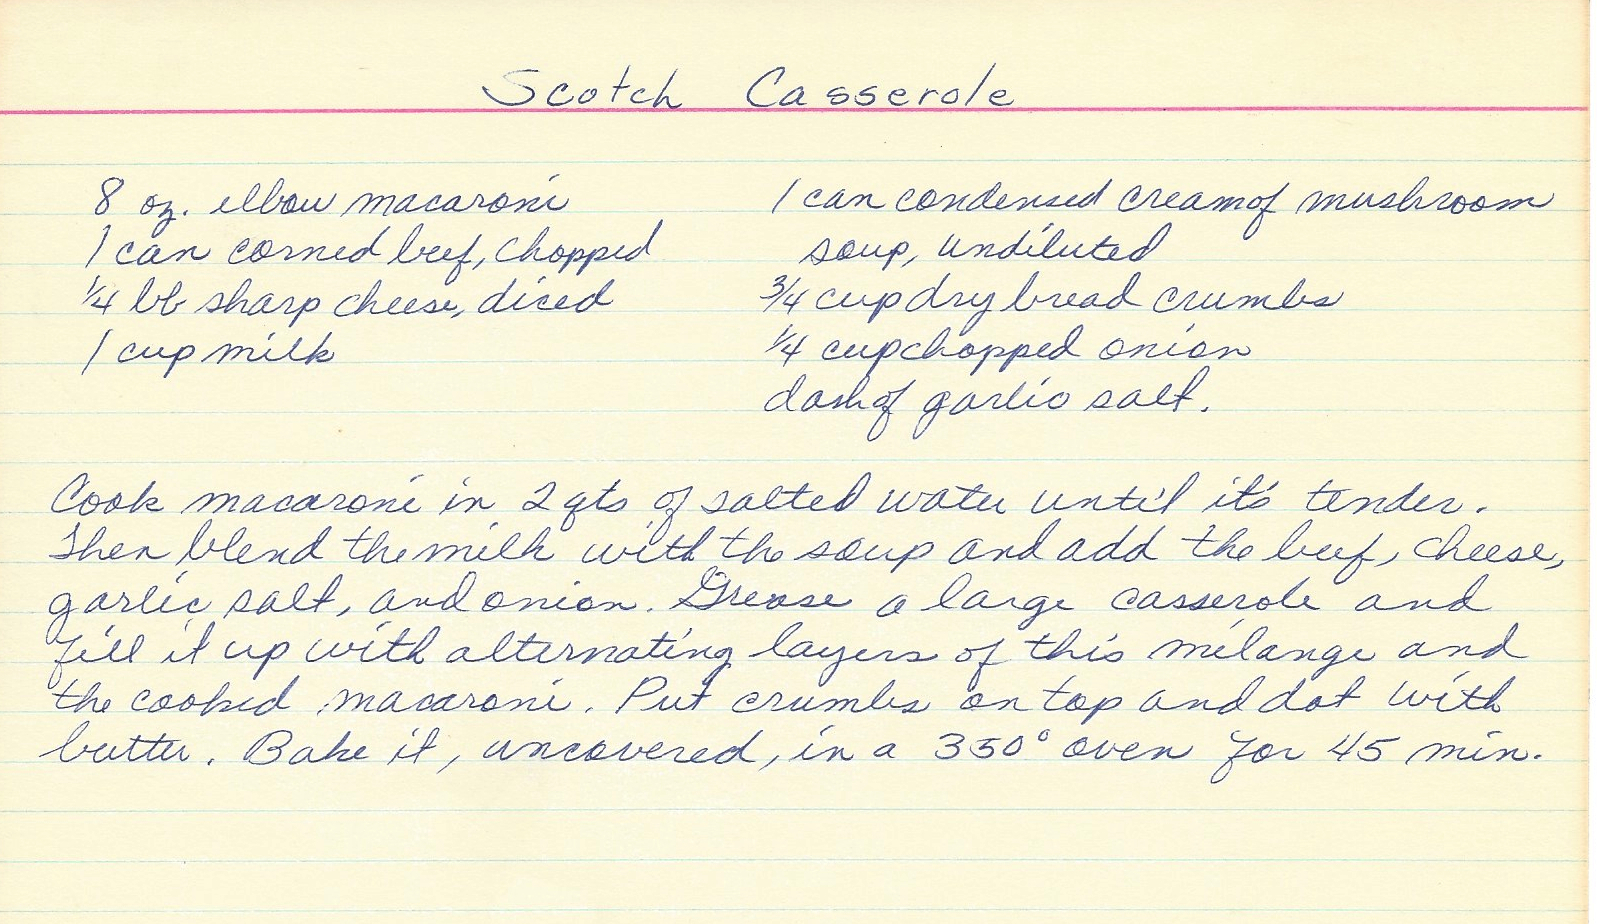 Scotch Casserole
8 oz. elbow macaroni
1 can corned beef, chopped
1/4 lb sharp cheese, diced
1 cup milk
1 can condensed cream of mushroom
soup, undiluted
3/4 cup dry bread crumbs
1/4 cup chopped onion
dash of garlic salt.
Cook macaroni in 2 qts of salted water until it's tender.
Then blend the milk with the soup and add the beef, cheese,
garlic salt, and onion. Grease a large casserole and
fill it up with alternating layers of this mélange and
the cooked macaroni. Put crumbs on top and dot with
butter. Bake it, uncovered, in a 350° oven for 45 min.